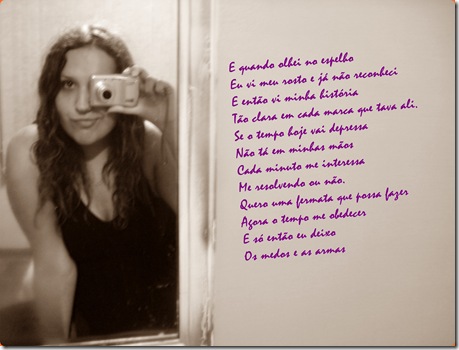 E quando olhei no espelho
Eu vi meu rosto e já não reconheci
E então vi minha história
Tão clara em cada marca que tava ali.
Se o tempo hoje vai depressa
Não tá em minhas mãos
Cada minuto me interessa
Me resolvendo ou não.
Quero uma fermata que possa fazer
Agora o tempo me obedecer
E só então eu deixo
Os medos e as armas